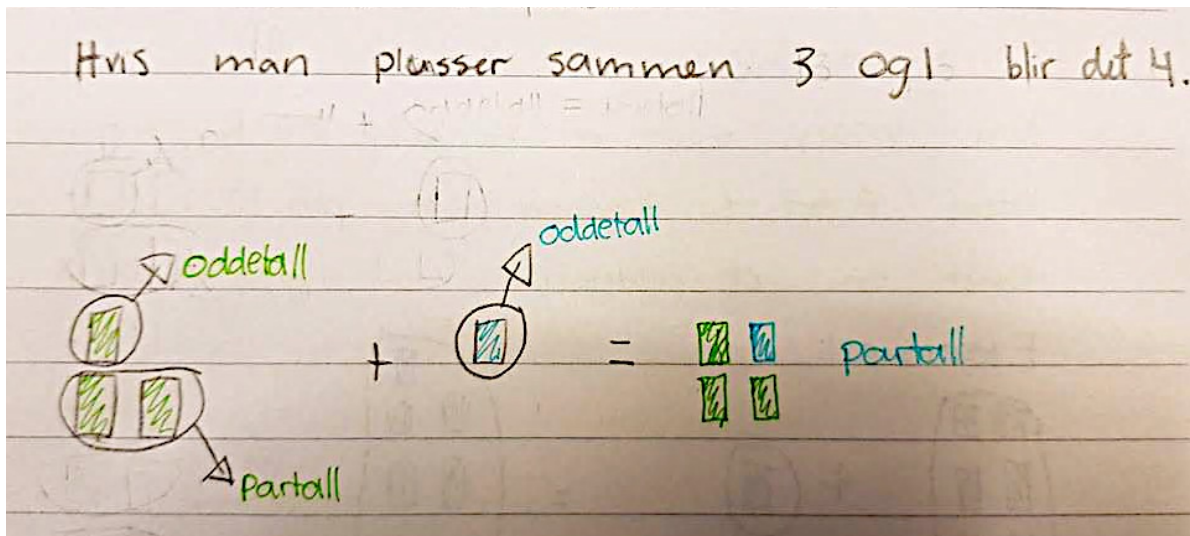 Hvis man plusser sammen 3 og 1 blir det 4.
oddetall
oddetall
+ = partall
partall